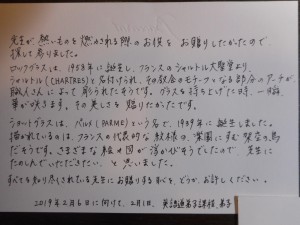 先生が 熱いものを 燃やされる際のお供を お贈りしたかたので
探して参りました。
ロックグラスは、1958年に誕生し、フランスのシャルトル大聖堂より、
シャルトル(CHARTRES)と名付けられ、その教会のモチーフとなる部分のアーチが
職人さんによって彫られたそうです。グラスを持ち上げた時、一瞬、
華が咲きます。その美しさを贈りたかたです。
ショートグラスは、パルメ(PARME)という名で、1939年に誕生しました。
描かれているのは、フランスの代表的な紋様の、楽園にすむ架空の鳥
だそうです。さまざまな絵や図が浮かびそうでしたので 先生に
たのしんでいただきたい、と思いました。
すべてを知り尽くされている先生にお贈りするすべを、どうか、お許しください。
2019年2月6日に向けて、2月1日、英語道弟子課程、弟子